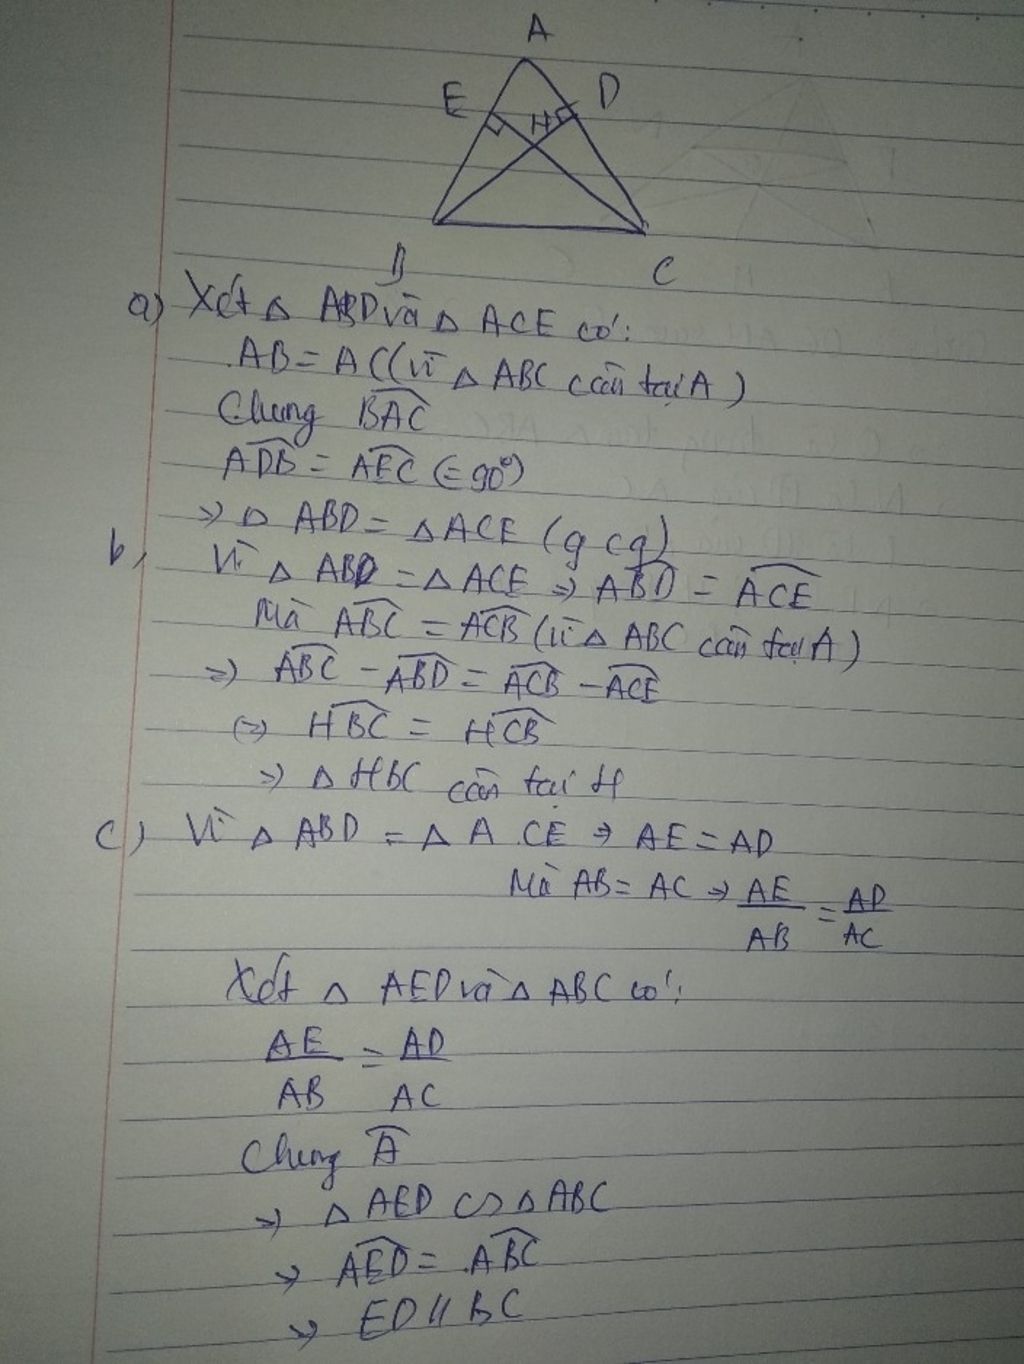 A
E
D
H
B
C
a) Xét △ ABD và △ ACE có:
AB = AC (vì △ ABC cân tại A)
Chung \widehat{BAC}
\widehat{ADB} = \widehat{AEC} (= 90°)
=> △ ABD = △ ACE (g cg)
b, Vì △ ABD = △ ACE => \widehat{ABD} = \widehat{ACE}
Mà \widehat{ABC} = \widehat{ACB} (vì △ ABC cân tại A)
=> \widehat{ABC} - \widehat{ABD} = \widehat{ACB} - \widehat{ACE}
(=> \widehat{HBC} = \widehat{HCB}
=> △ HBC cân tại H
c) Vì △ ABD = △ A CE => AE = AD
Mà AB = AC => \frac{AE}{AB} = \frac{AD}{AC}
Xét △ AED và △ ABC có:
\frac{AE}{AB} = \frac{AD}{AC}
Chung \widehat{A}
=> △ AED ∽ △ ABC
=> \widehat{AED} = \widehat{ABC}
=> ED // BC